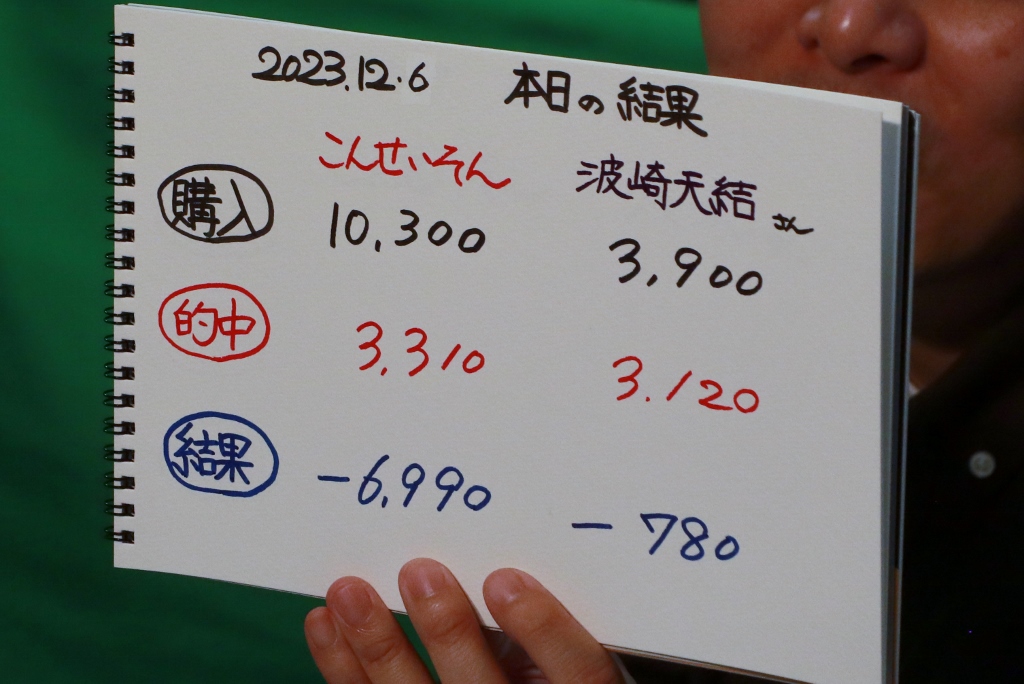 2023.12.6 本日の結果
こんせいそん 波崎天結さん
購入 10,300 3,900
的中 3,310 3.120
結果 -6,990 -780